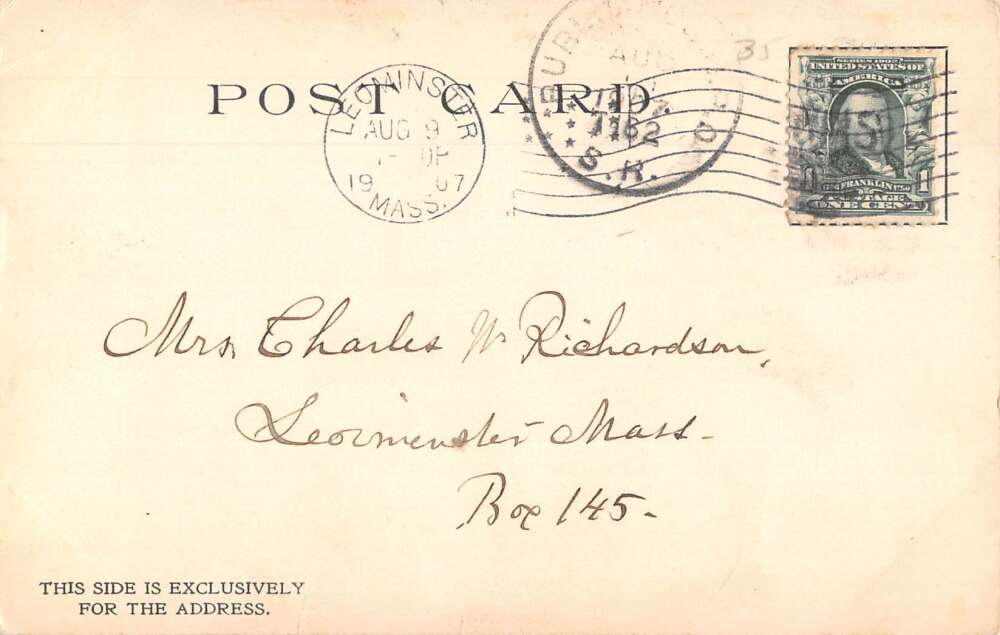 POST CARD
LEOMINSTR
AUG 9
19 07
MASS.
AUG
1162
S. R.
35
SERIES 1902
UNITED STATES OF
AMERICA
FRANKLIN
POSTAGE
1 1
ONE CENT
Mrs. Charles W Richardson,
Leominster Mass-
Box 145-
THIS SIDE IS EXCLUSIVELY
FOR THE ADDRESS.